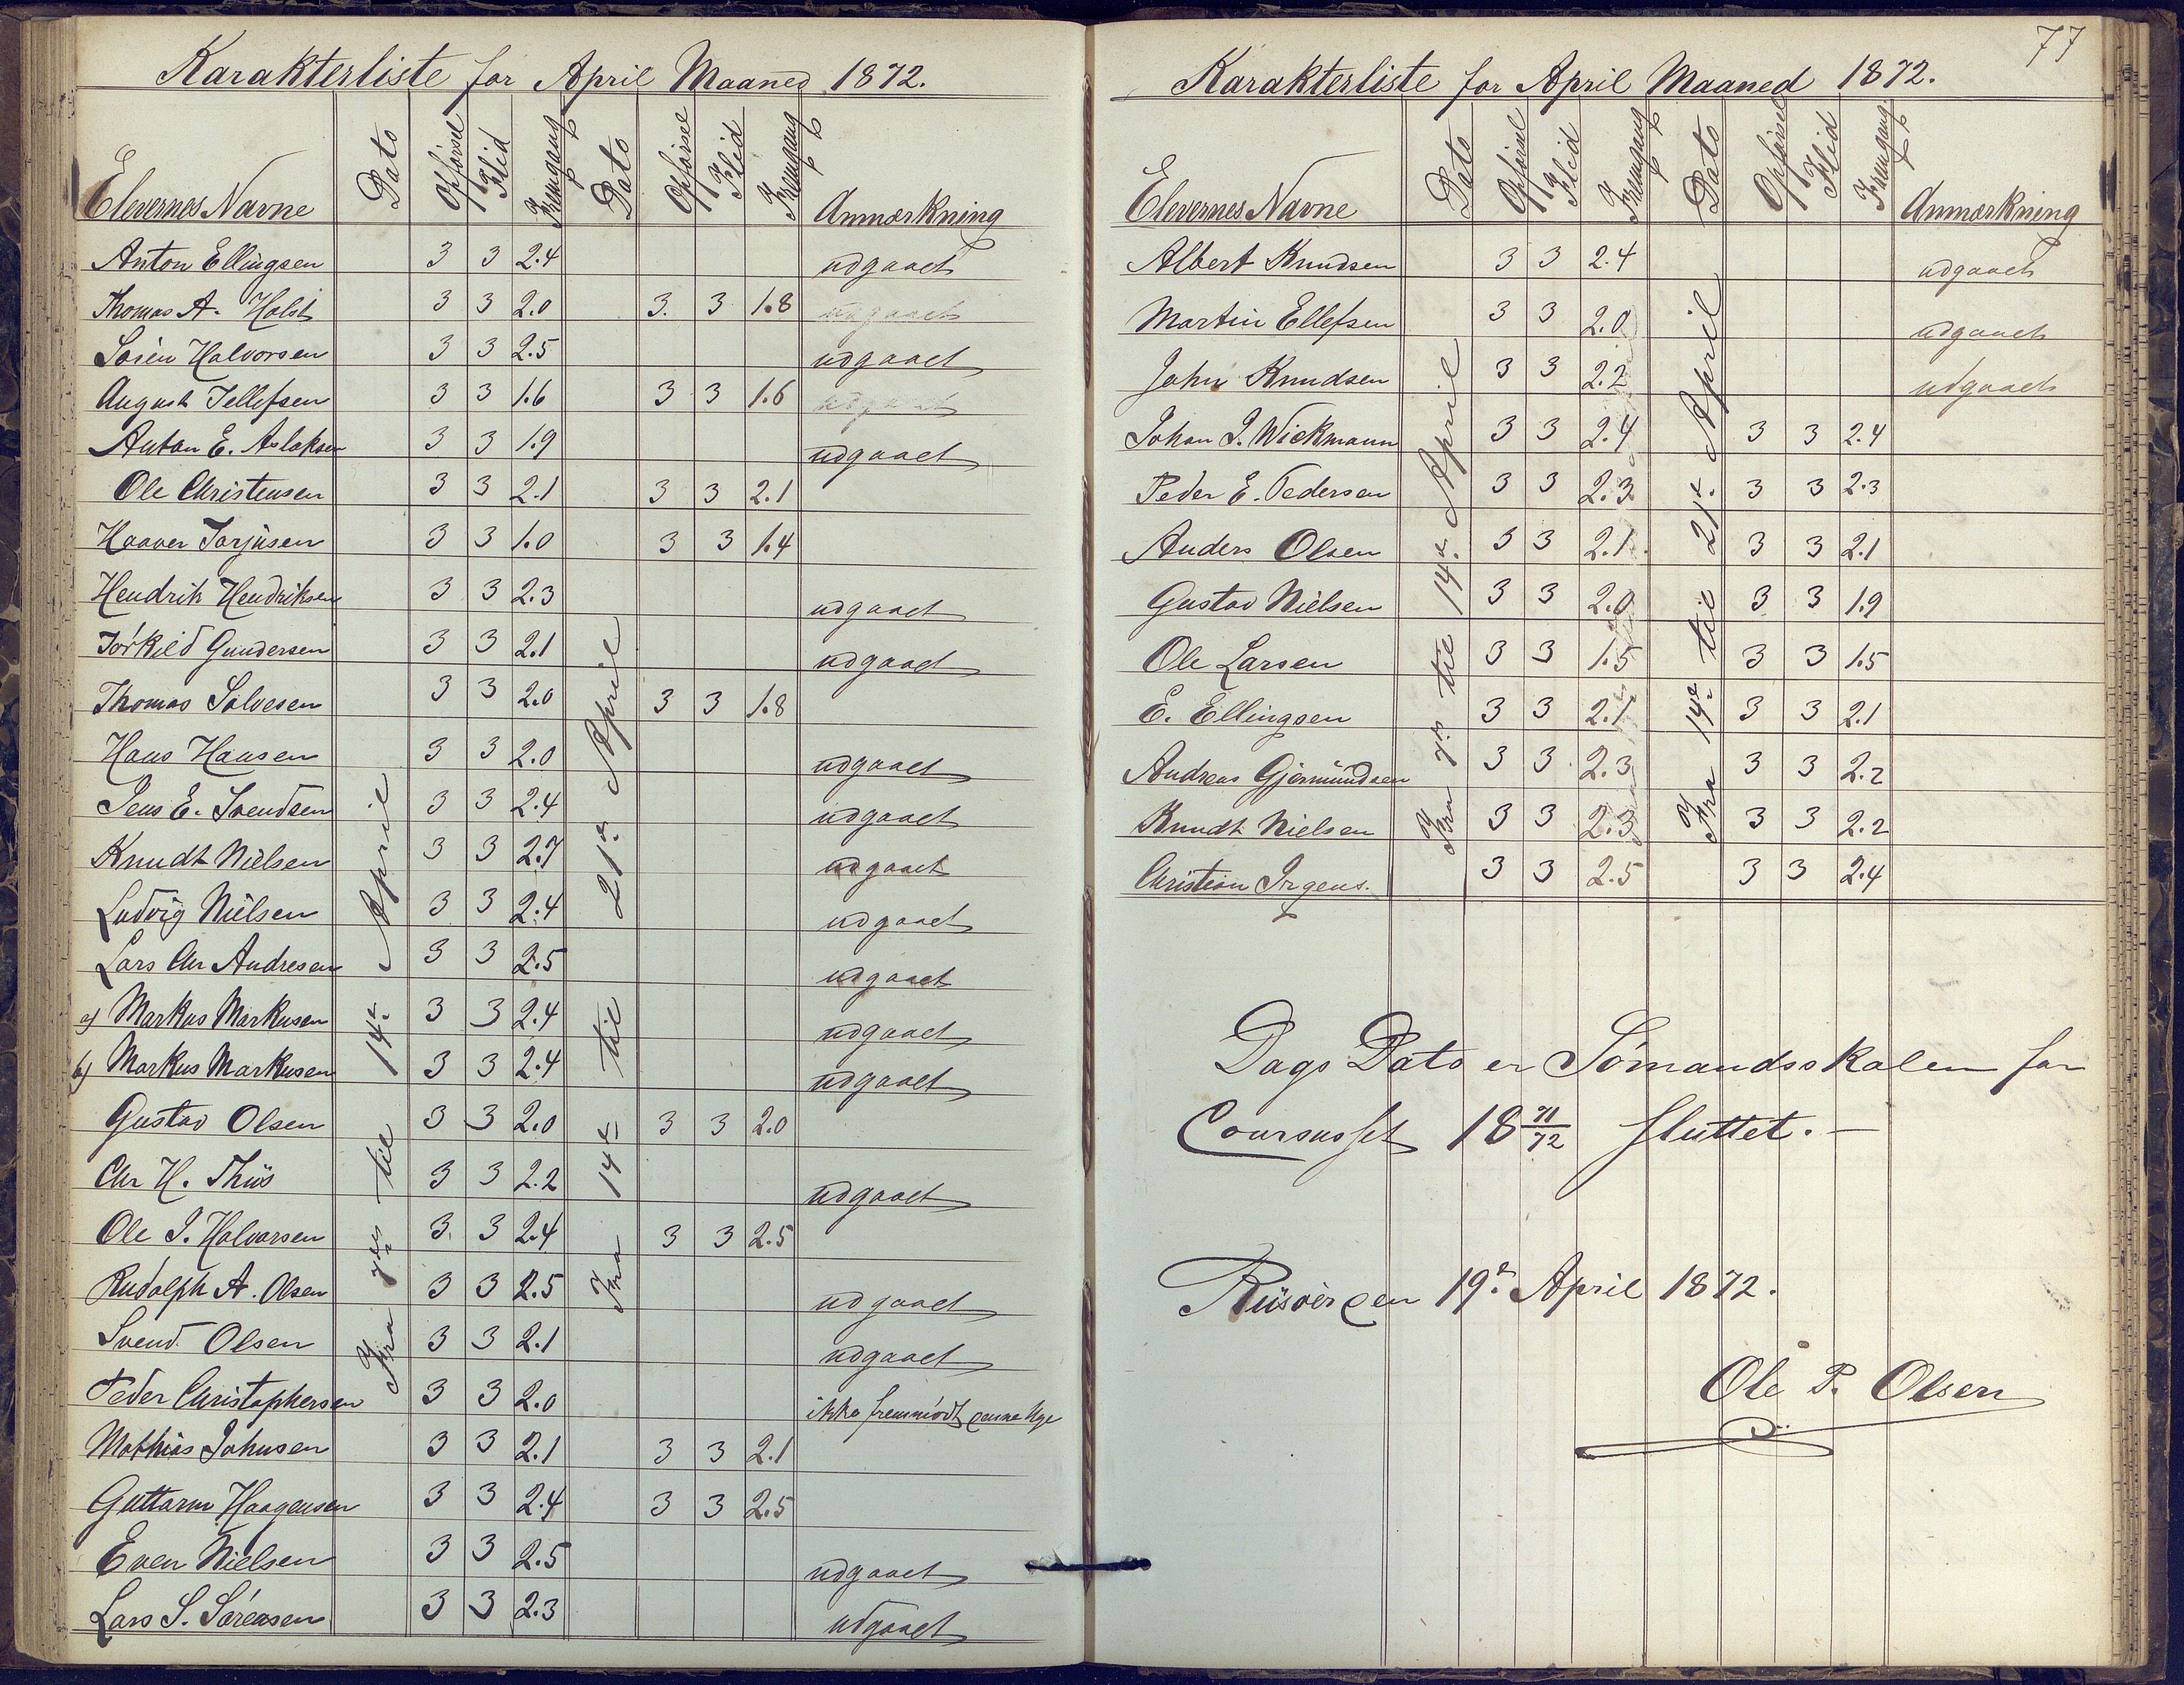 Karakterliste for April Maaned 1872.
Elevernes Navne Dato Opførsel Flid Fremgang Dato Opførsel Flid Fremgang Anmærkning
Fra 7de til 14de April
Fra 14de til 21de April
Anton Ellingsen 3 3 2.4 udgaaet
Thomas A. Holst 3 3 2.0 3. 3 1.8 udgaaet
Søren Halvorsen 3 3 2.5 udgaaet
August Tellefsen 3 3 1.6 3 3 1.6 udgaaet
Anton E. Aslaksen 3 3 1.9 udgaaet
Ole Christensen 3 3 2.1 3 3 2.1
Haaver Torjusen 3 3 1.0 3 3 1.4
Hendrik Hendriksen 3 3 2.3 udgaaet
Torkild Gundersen 3 3 2.1 udgaaet
Thomas Salvesen 3 3 2.0 3 3 1.8
Hans Hansen 3 3 2.0 udgaaet
Jens E. Svendsen 3 3 2.4 udgaaet
Knudt Nielsen 3 3 2.7 udgaaet
Ludvig Nielsen 3 3 2.4 udgaaet
Lars Chr Andresen 3 3 2.5 udgaaet
a) Markus Markusen 3 3 2.4 udgaaet
b) Markus Markusen 3 3 2.4 udgaaet
Gustav Olsen 3 3 2.0 3 3 2.0
Chr H. Thiis 3 3 2.2 udgaaet
Ole J. Halvorsen 3. 3 2.4 3 3 2.5
Rudolph A. Olsen 3 3 2.5 udgaaet
Svend Olsen 3 3 2.1 udgaaet
Peder Christophersen 3 3 2.0 ikke fremmødt denne Uge
Mathias Johnsen 3 3 2.1 3 3 2.1
Guttorm Haagensen 3 3 2.4 3 3 2.5
Even Nielsen 3 3 2.5 udgaaet
Lars S. Sørensen 3 3 2.3 udgaaet
77
Karakterliste for April Maaned 1872.
Elevernes Navne Dato Opførsel Flid Fremgang Dato Opførsel Flid Fremgang Anmærkning
Fra 7de til 14de April
Fra 14de til 21de April
Albert Knudsen 3 3 2.4 udgaaet
Martin Ellefsen 3 3 2.0 udgaaet
John Knudsen 3 3 2.2 udgaaet
Johan J. Wickmann 3 3 2.4 3 3 2.4
Peder E. Pedersen 3 3 2.3 3 3 2.3
Anders Olsen 3 3 2.1 3 3 2.1
Gustav Nielsen 3 3 2.0 3 3 1.9
Ole Larsen 3 3 1.5 3 3 1.5
E. Ellingsen 3 3 2.1 3 3 2.1
Andreas Gjermundsen 3 3 2.3 3 3 2.2
Knudt Nielsen 3 3 2.3 3 3 2.2
Christian Irgens. 3 3 2.5 3 3 2.4
Dags Dato er Sømandsskolen for
Coursusset 18 71/72 sluttet. —
Riisøer den 19de April 1872.
Ole P. Olsen